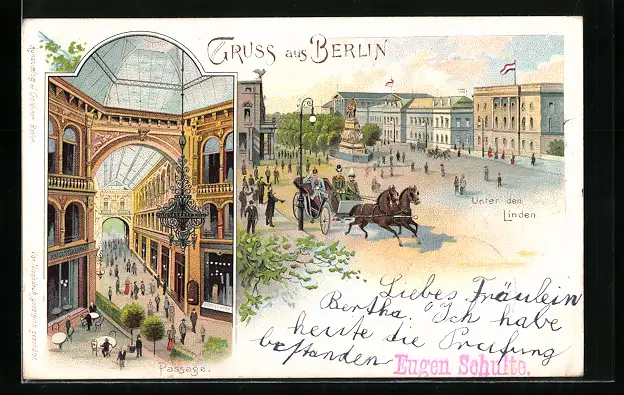 GRUSS AUS BERLIN
Unter den
Linden
Passage.
Liebes Fräulein
Bertha. Ich habe
heute die Prüfung
bestanden
Eugen Schulte.